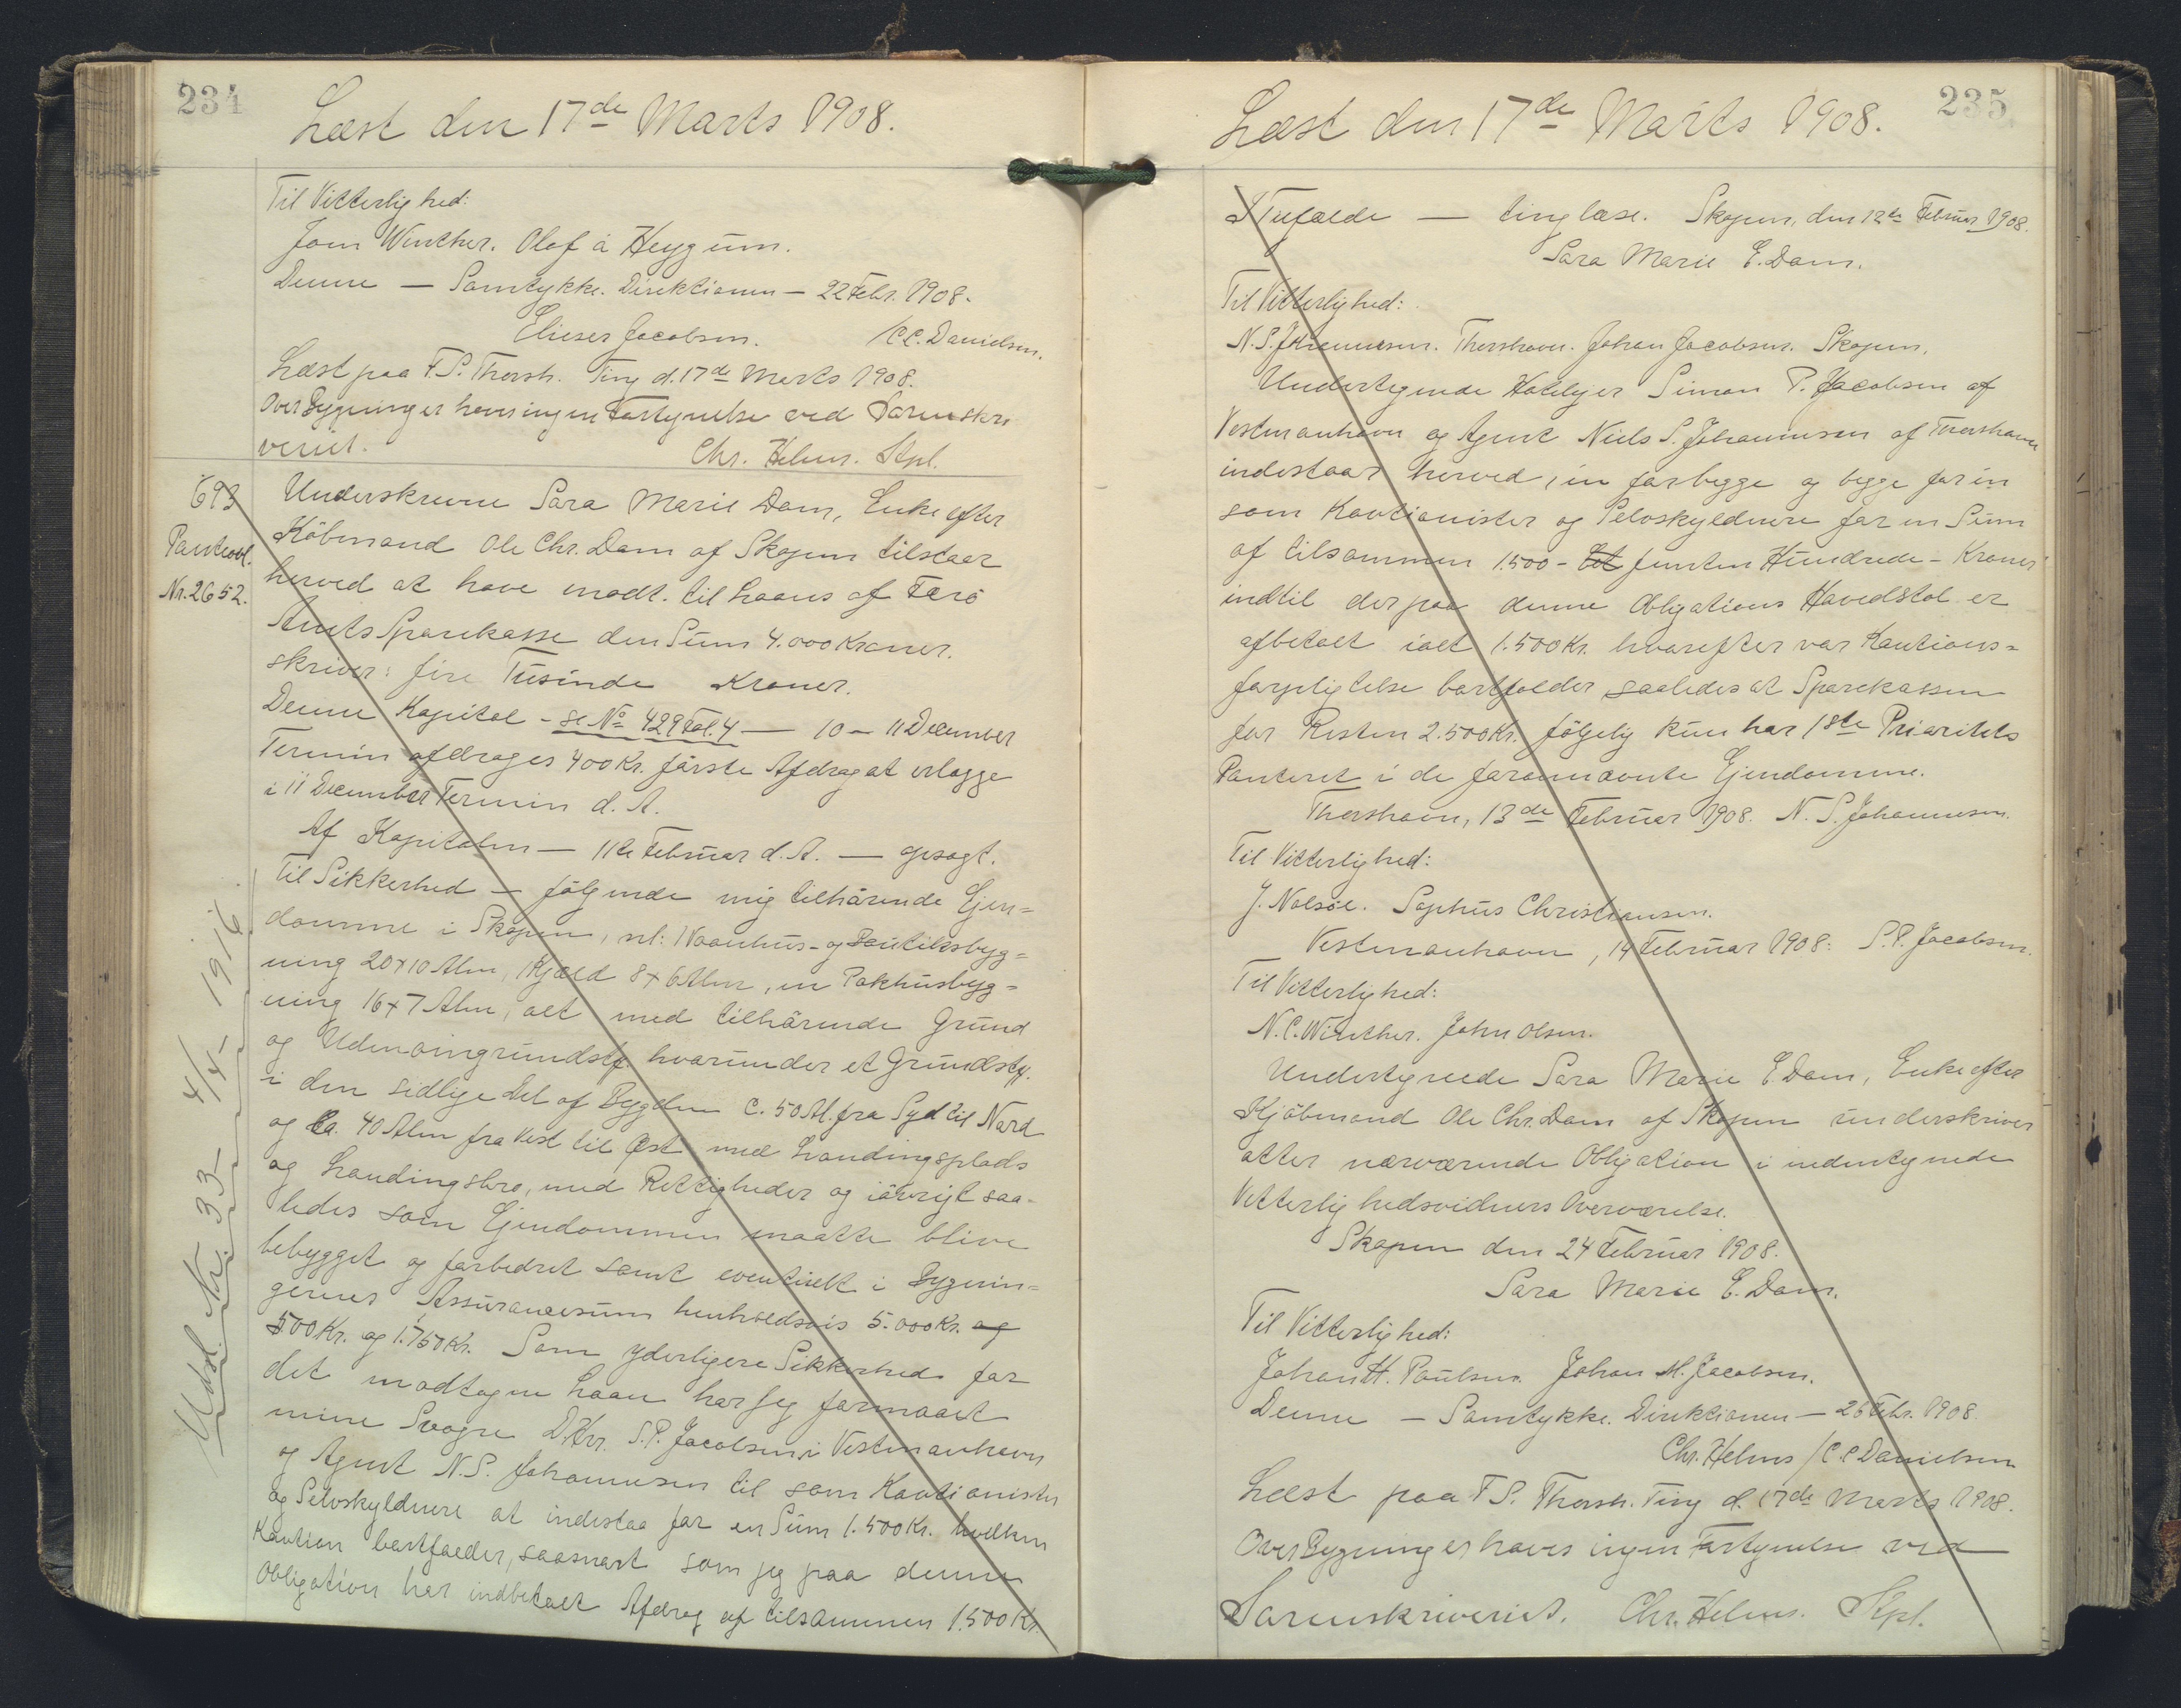 234
Læst den 17de Marts 1908.
Til Vitterlighed:
Joen Winther. Olaf á Heygum.
Denne — Samtykke. Direktionen — 22 Febr. 1908.
Elieser Jacobsen. / C.C. Danielsen.
Læst paa F.S. Thorsh. Ting d. 17de Marts 1908.
Over Bygninger haves ingen Fortegnelse ved Sorenskri
veriet. Chr. Helms. Stpl.
693
Panteobl.
Nr. 2652.
Underskrevne Sara Marie Dam, Enke efter
Købmand Ole Chr. Dam af Skopun tilstaar
herved at have modt. til Laans af Færö
Amts Sparekasse den Sum 4.000 Kroner.
skriver: fire Tusinde Kroner.
Denne Kapital - se No 429 Fol. 4 — 10 — 11 December
Termin afdrages 400 Kr. første Afdrag at erlægge
i 11 December Termin d. A.
Af Kapitalen — 11te Februar d. A. — opsagt.
Til Sikkerhed — følgende mig tilhørende Ejen=
domme i Skopun, nl: 1 Vaanhus- og Butiksbyg=
ning 20 x 10 Alen, 1 Kjæld 8 x 6 Alen, en Pakhusbyg=
ning 16 x 7 Alen, alt med tilhørende Grund
og Udenomgrundsty. hvorunder et Grundsty.
i den sidlige Del af Bygden c. 50 Al. fra Syd til Nord
og Ca. 40 Alen fra Vest til Øst med Landingsplads
og Landingsbro, med Rettigheder og iøvrigt saa-
ledes som Ejendommen maatte blive
bebygget og forbedret samt eventuelt i Bygnin=
gernes Assurancesum henholdsvis 5.000 Kr. og
500 Kr. og 1.750 Kr. Som yderligere Sikkerhed for
det modtagne Laan har jeg formaaet
mine Svogre D.Hrr. S.P. Jacobsen i Vestmanhavn
og Agent N.S. Johannesen til som Kautionister
og Selvskyldnere at indestaa for en Sum 1.500 Kr. hvilken
Kaution bortfalder, saasnart som jeg paa denne
Obligation har indbetalt Afdrag af tilsammen 1.500 Kr.
Udsl. Nr. 33 - 4/4 - 1916
235
Læst den 17de Marts 1908.
I Tilfælde — tinglæse. Skopun, den 12te Februar 1908.
Sara Marie E. Dam.
Til Vitterlighed:
N.S. Johannesen. Thorshavn. Johan Jacobsen. Skopun.
Undertegnede Hotelejer Simon P. Jacobsen af
Vestmanhavn og Agent Niels S. Johannesen af Thorshavn
indestaar herved, en for begge og begge for en
som Kautionister og Selvskyldnere for en Sum
af tilsammen 1.500 - Et femten Hundrede - Kroner
indtil der paa denne Obligations Hovedstol er
afbetalt ialt 1.500 Kr. hvorefter vor Kautions=
forpligtelse bortfalder saaledes at Sparekassen
for Resten 2.500 Kr. følgelig kun har 1ste Prioritets
Panteret i de forannævnte Ejendomme.
Thorshavn, 13de Februar 1908. N.S. Johannesen.
Til Vitterlighed:
J. Nolsøe. Sophus Christiansen.
Vestmanhavn, 14 Februar 1908. S.P. Jacobsen.
Til Vitterlighed:
N.C. Winther. John Olsen.
Undertegnede Sara Marie E. Dam, Enke efter
Kjøbmand Ole Chr. Dam af Skopun underskriver
atter nærværende Obligation i nedentegnede
Vitterlighedsvidners Overværelse.
Skopun den 24 Februar 1908.
Sara Marie E. Dam.
Til Vitterlighed:
Johan H. Poulsen. Johan M. Jacobsen.
Denne — Samtykke. Direktionen — 26 Febr. 1908.
Chr. Helms / C.C. Danielsen
Læst paa F.S. Thorsh. Ting d. 17de Marts 1908.
Over Bygninger haves ingen Fortegnelse ved
Sorenskriveriet. Chr. Helms. Stpl.